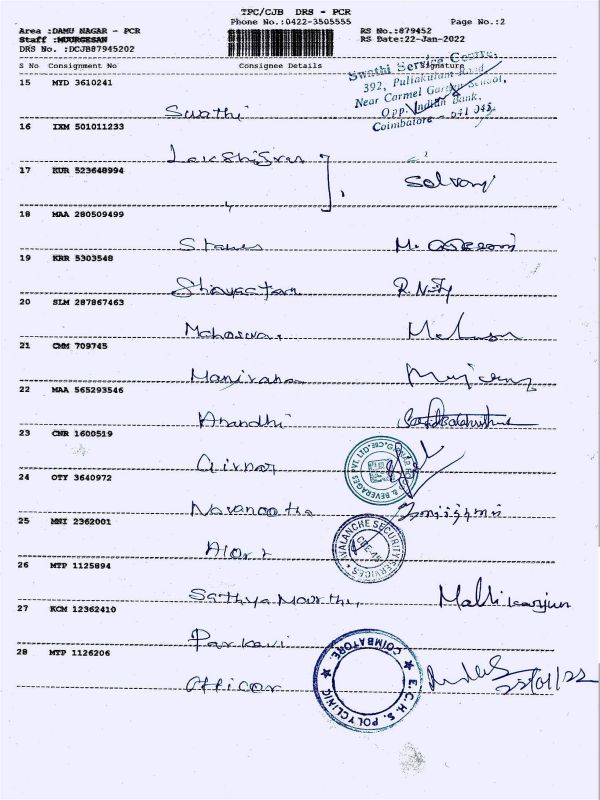 TPC/CJB DRS - PCR
Phone No.:0422-3505555 Page No.:2
Area :DAMU NAGAR - PCR RS No.:879452
Staff :MUURGESAN RS Date:22-Jan-2022
DRS No. :DCJB87945202
S No Consignment No Consignee Details Signature
Swathi Service Centre,
392, Puliakulam Road,
Near Carmel Garden School,
Opp. Indian Bank,
Coimbatore - 641 045
15 MYD 3610241
Swathi
16 IXM 501011233
17 KUR 523648994
Selvam
18 MAA 280509499
Stanes
19 KRR 5303548
20 SLM 287867463
21 CMM 709745
22 MAA 565293546
Anandhi
23 CNR 1600519
Girnar
24 OTY 3640972
25 MNI 2362001
AVALANCHE SECURITY SERVICES
CBE-45
Alert
26 MTP 1125894
Sathya Moorthi, Mallikarjun
27 KCM 12362410
Parkavi
28 MTP 1126206
E.C.H.S. POLYCLINIC COIMBATORE.
Officer 22/01/22